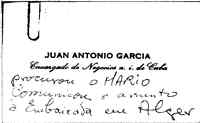 JUAN ANTONIO GARCIA
Encargado de Negocios a. i. de Cuba
procurou o MARIO
Comunicou o assunto
à Embaixada em Alger